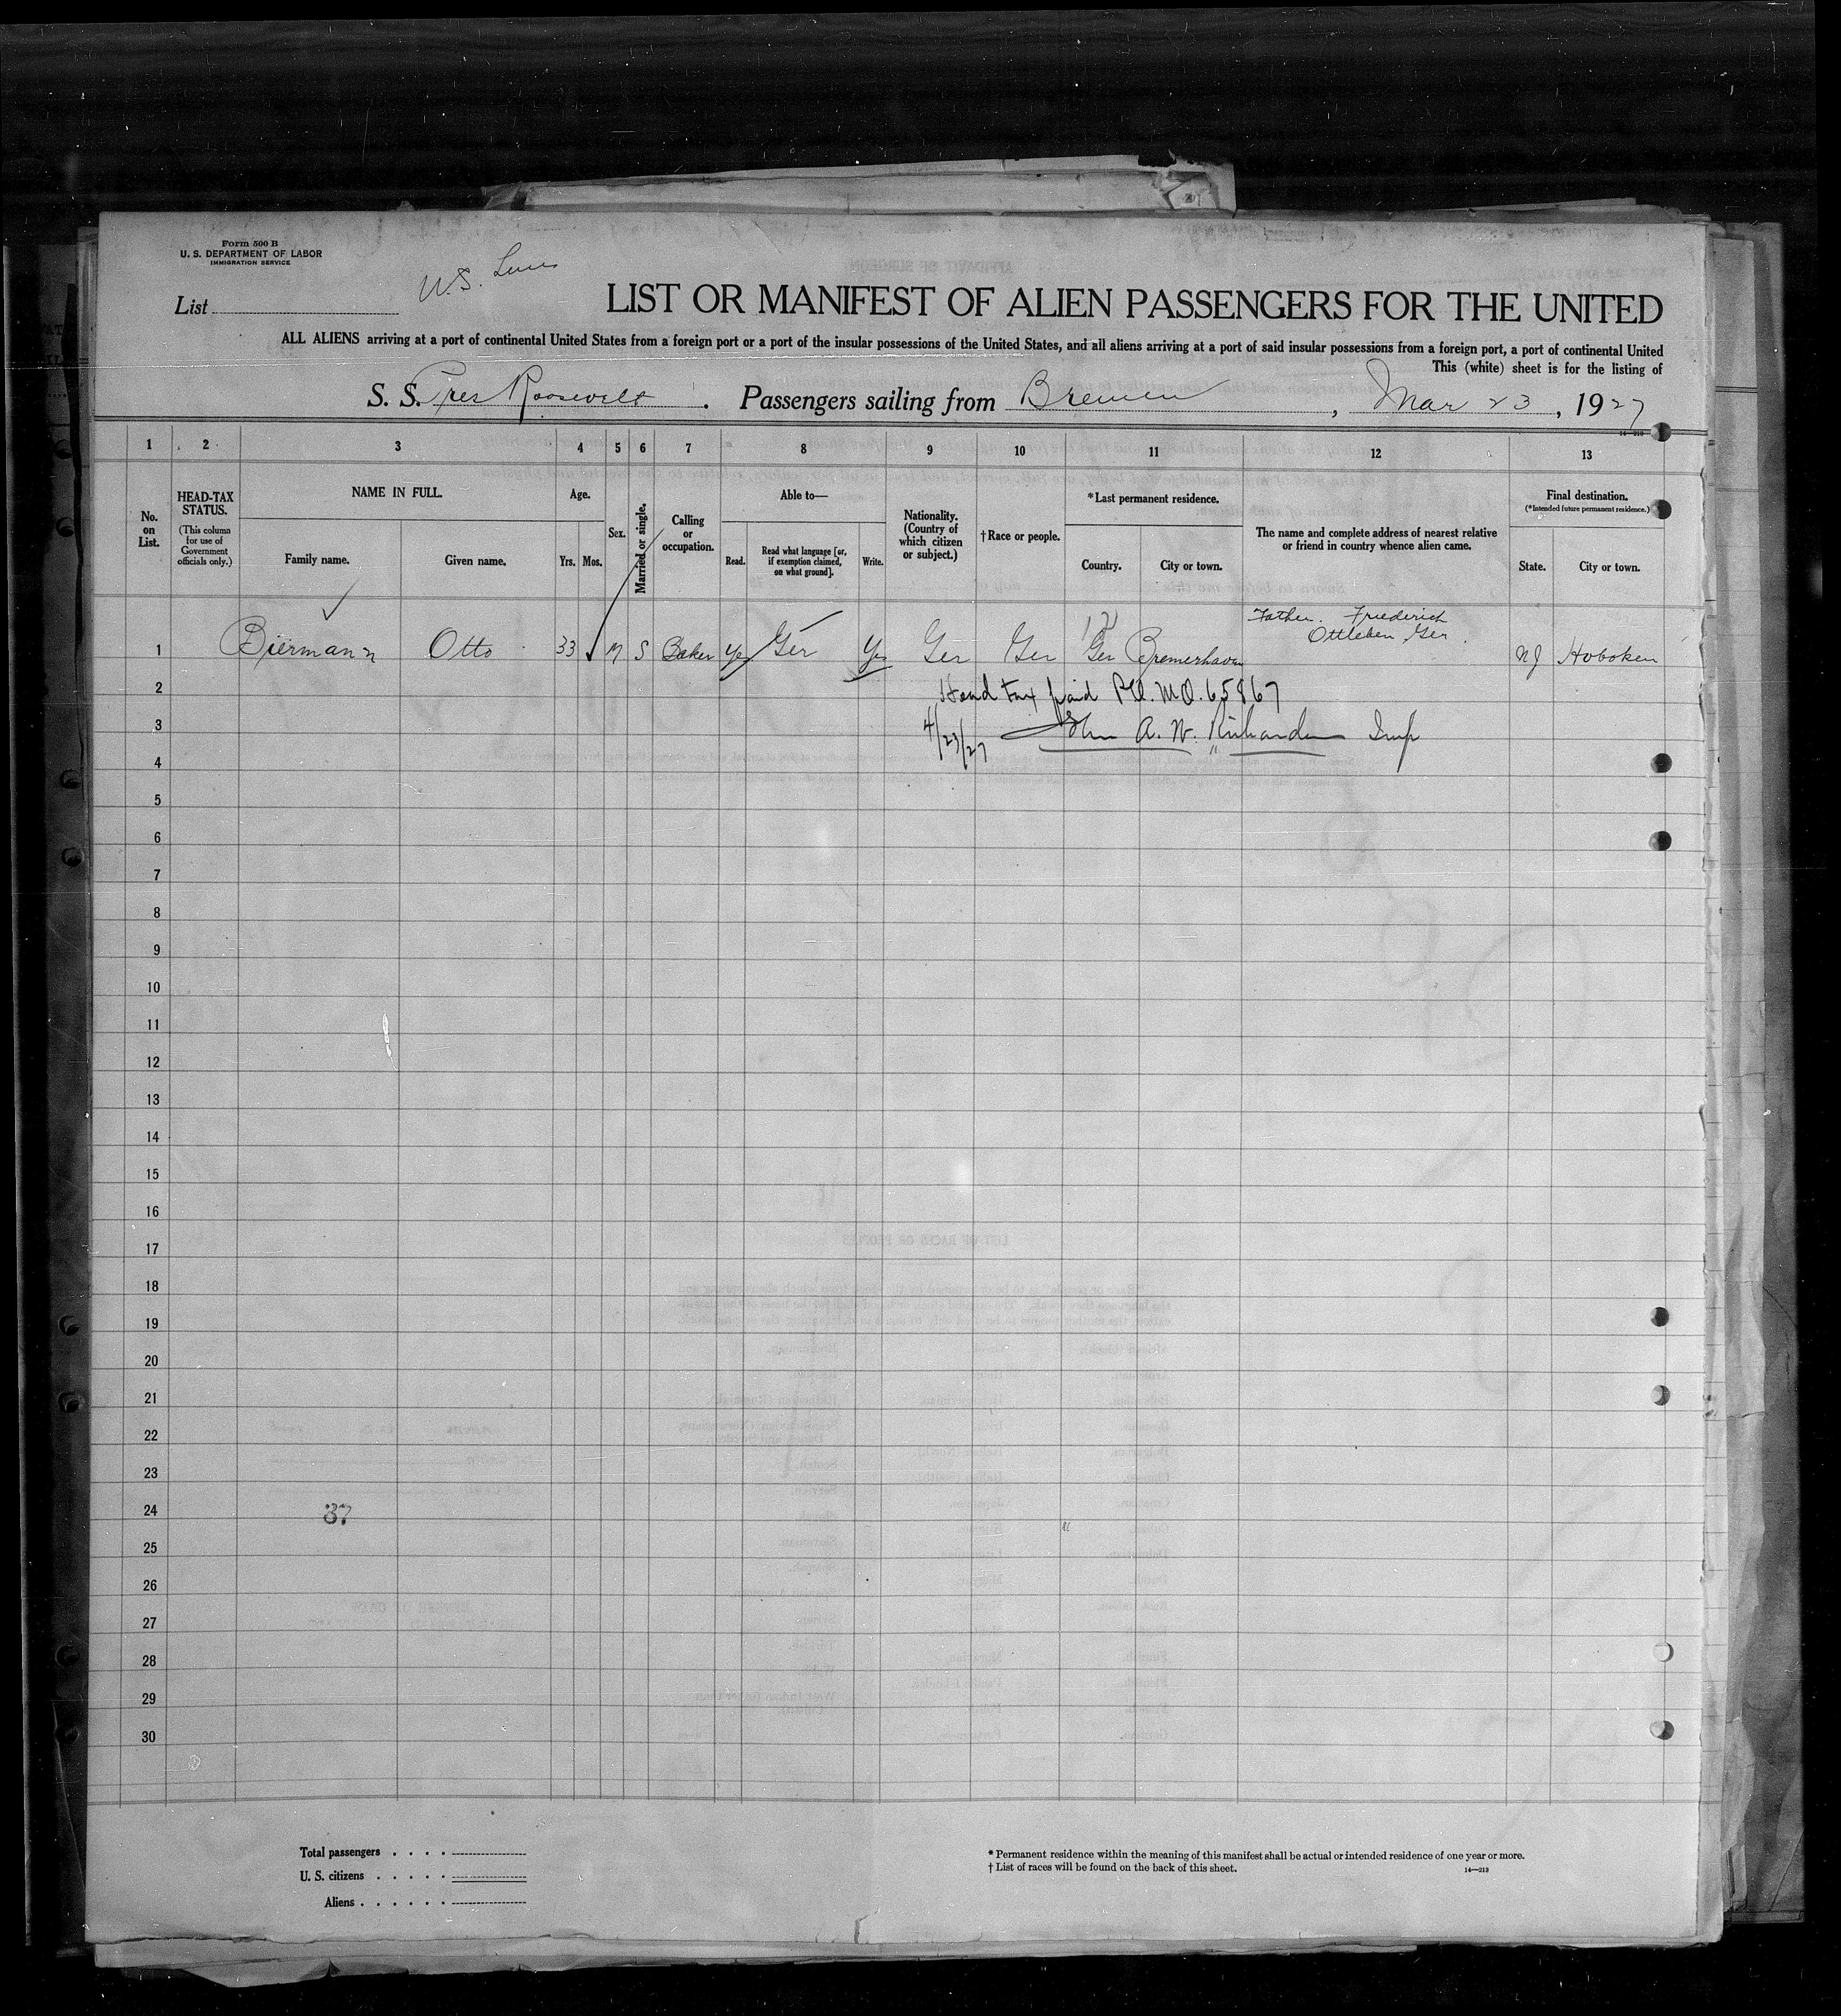 Form 500 B
U. S. DEPARTMENT OF LABOR
IMMIGRATION SERVICE
U.S. Lines
List
LIST OR MANIFEST OF ALIEN PASSENGERS FOR THE UNITED
ALL ALIENS arriving at a port of continental United States from a foreign port or a port of the insular possessions of the United States, and all aliens arriving at a port of said insular possessions from a foreign port, a port of continental United
This (white) sheet is for the listing of
S. S. Pres Roosevelt . Passengers sailing from Bremen , Mar 23 , 1927
14—213
1 2 3 4 5 6 7 8 9 10 11 12 13
No. on List.
HEAD-TAX STATUS.
(This column for use of Government officials only.)
NAME IN FULL.
Family name. Given name.
Age.
Yrs. Mos.
Sex.
Married or single.
Calling or occupation.
Able to—
Read. Read what language [or, if exemption claimed, on what ground]. Write.
Nationality. (Country of which citizen or subject.)
†Race or people.
*Last permanent residence.
Country. City or town.
The name and complete address of nearest relative or friend in country whence alien came.
Final destination.
(*Intended future permanent residence.)
State. City or town.
Father. Friederich
Ottleben Ger.
1 Biermann Otto 33 M S Baker Yes Ger Yes Ger Ger Ger Bremerhaven NJ Hoboken
2 Head tax paid P.O. M.O. 65867
3 4/23/27 John A. W. Richardson Insp
4
5
6
7
8
9
10
11
12
13
14
15
16
17
18
19
20
21
22
23
24 37
25
26
27
28
29
30
Total passengers . . . .
U. S. citizens . . . . .
Aliens . . . . . .
* Permanent residence within the meaning of this manifest shall be actual or intended residence of one year or more.
† List of races will be found on the back of this sheet. 14—213